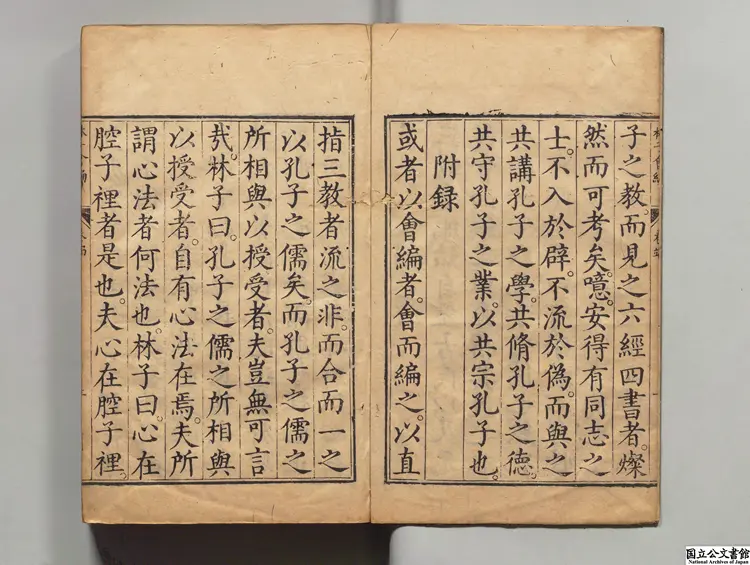 子之教。而見之六經四書者。燦
然而可考矣。噫。安得有同志之
士。不入於辟。不流於偽。而與之
共講孔子之學。共脩孔子之德。
共守孔子之業。以共宗孔子也。
附録
或者以會編者。會而編之。以直
指三教者流之非。而合而一之
以孔子之儒矣。而孔子之儒之
所相與以授受者。夫豈無可言
㢤。林子曰。孔子之儒之所相與
以授受者。自有心法在焉。夫所
謂心法者何法也。林子曰。心在
腔子裡者是也。夫心在腔子裡。
国立公文書館
National Archives of Japan